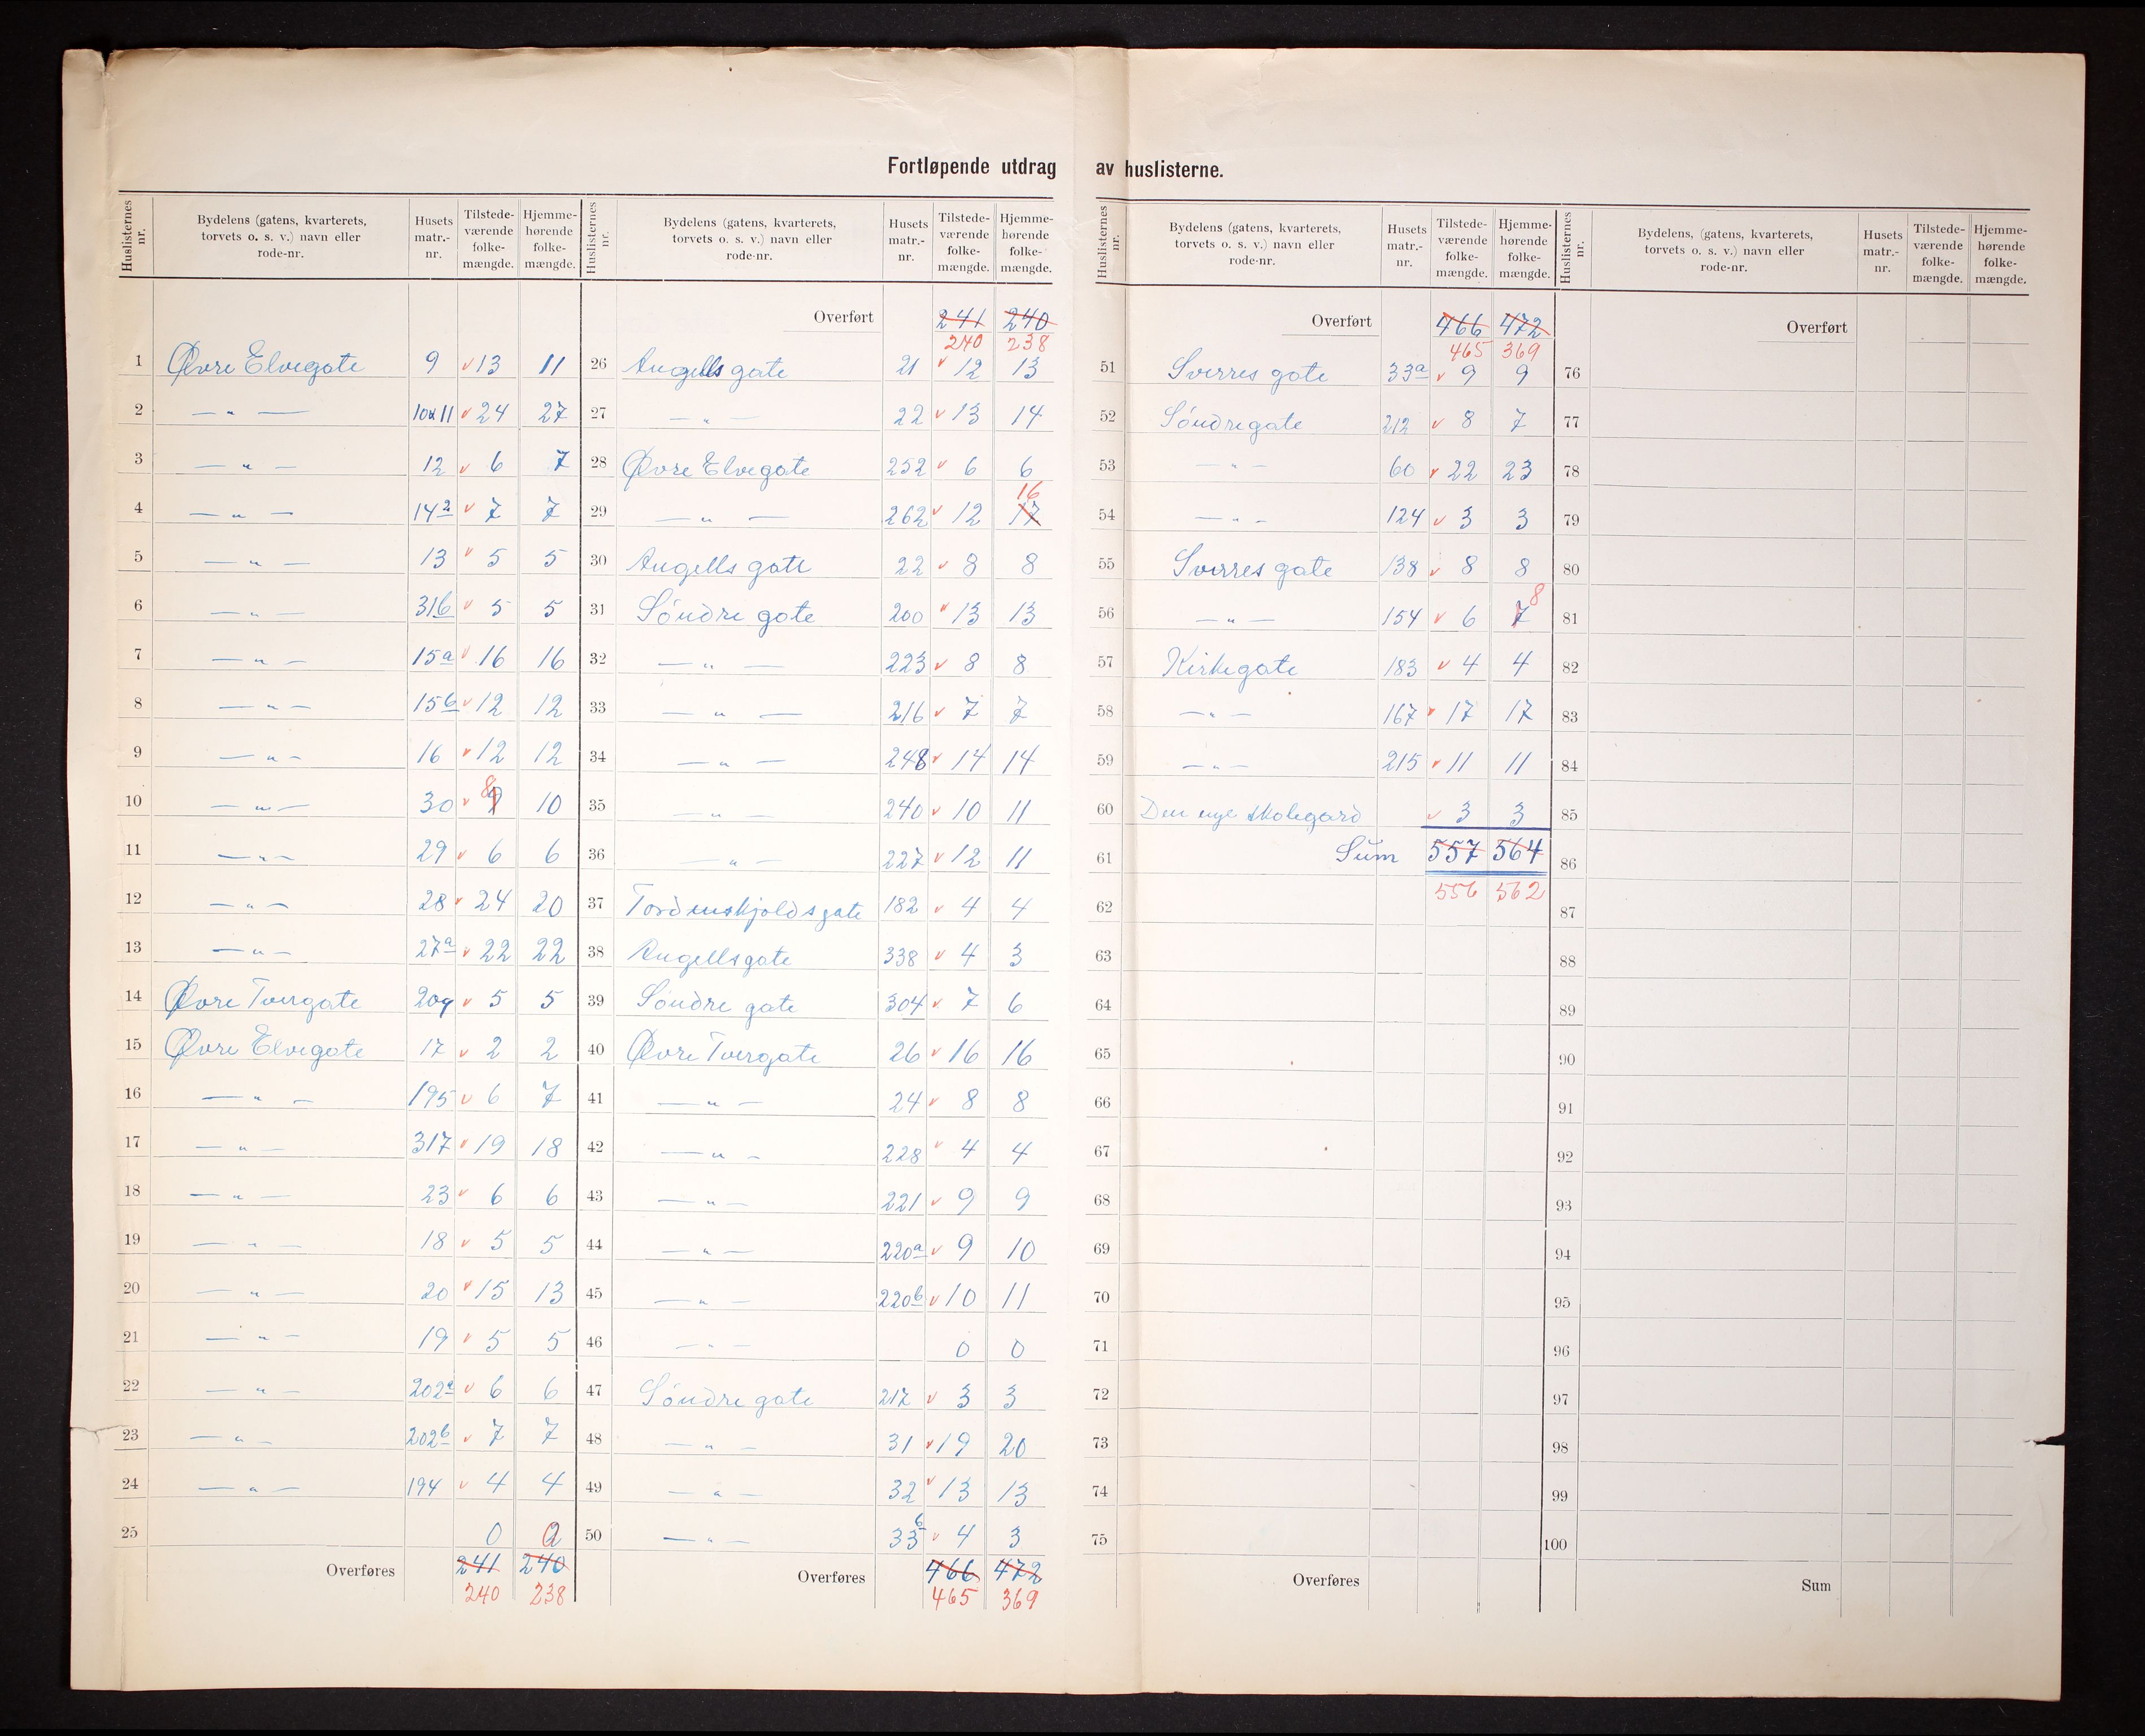 Fortløpende utdrag av huslisterne.
Huslisternes nr. | Bydelens (gatens, kvarterets, torvets o. s. v.) navn eller rode-nr. | Husets matr.-nr. | Tilstedeværende folkemængde. | Hjemmehørende folkemængde.
1 Øvre Elvegate 9 v 13 11
2 — „ — 10 & 11 v 24 27
3 — „ — 12 v 6 7
4 — „ — 14a v 7 7
5 — „ — 13 v 5 5
6 — „ — 316 v 5 5
7 — „ — 15a v 16 16
8 — „ — 15b v 12 12
9 — „ — 16 v 12 12
10 — „ — 30 v 9 8 10
11 — „ — 29 v 6 6
12 — „ — 28 v 24 20
13 — „ — 27a v 22 22
14 Øvre Tvergate 209 v 5 5
15 Øvre Elvegate 17 v 2 2
16 — „ — 195 v 6 7
17 — „ — 317 v 19 18
18 — „ — 23 v 6 6
19 — „ — 18 v 5 5
20 — „ — 20 v 15 13
21 — „ — 19 v 5 5
22 — „ — 202a v 6 6
23 — „ — 202b v 7 7
24 — „ — 194 v 4 4
25 0 0
Overføres 241 240
240 238
Huslisternes nr. | Bydelens (gatens, kvarterets, torvets o. s. v.) navn eller rode-nr. | Husets matr.-nr. | Tilstedeværende folkemængde. | Hjemmehørende folkemængde.
Overført 241 240
240 238
26 Angells gate 21 v 12 13
27 — „ — 22 v 13 14
28 Øvre Elvegate 252 v 6 6
29 — „ — 262 v 12 17 16
30 Angells gate 22 v 8 8
31 Søndre gate 200 v 13 13
32 — „ — 223 v 8 8
33 — „ — 216 v 7 7
34 — „ — 248 v 14 14
35 — „ — 240 v 10 11
36 — „ — 227 v 12 11
37 Tordenskjolds gate 182 v 4 4
38 Angellsgate 338 v 4 3
39 Søndre gate 304 v 7 6
40 Øvre Tvergate 26 v 16 16
41 — „ — 24 v 8 8
42 — „ — 228 v 4 4
43 — „ — 221 v 9 9
44 — „ — 220a v 9 10
45 — „ — 220b v 10 11
46 — „ — 0 0
47 Søndre gate 217 v 3 3
48 — „ — 31 v 19 20
49 — „ — 32 v 13 13
50 — „ — 33b v 4 3
Overføres 466 472
465 369
Huslisternes nr. | Bydelens (gatens, kvarterets, torvets o. s. v.) navn eller rode-nr. | Husets matr.-nr. | Tilstedeværende folkemængde. | Hjemmehørende folkemængde.
Overført 466 472
465 369
51 Sverres gate 33a v 9 9
52 Søndregate 212 v 8 7
53 — „ — 60 v 22 23
54 — „ — 124 v 3 3
55 Sverres gate 138 v 8 8
56 — „ — 154 v 6 7 8
57 Kirkegate 183 v 4 4
58 — „ — 167 v 17 17
59 — „ — 215 v 11 11
60 Den nye skolegard v 3 3
61 Sum 557 564
62 556 562
63
64
65
66
67
68
69
70
71
72
73
74
75
Overføres
Huslisternes nr. | Bydelens, (gatens, kvarterets, torvets o. s. v.) navn eller rode-nr. | Husets matr.-nr. | Tilstedeværende folkemængde. | Hjemmehørende folkemængde.
Overført
76
77
78
79
80
81
82
83
84
85
86
87
88
89
90
91
92
93
94
95
96
97
98
99
100
Sum